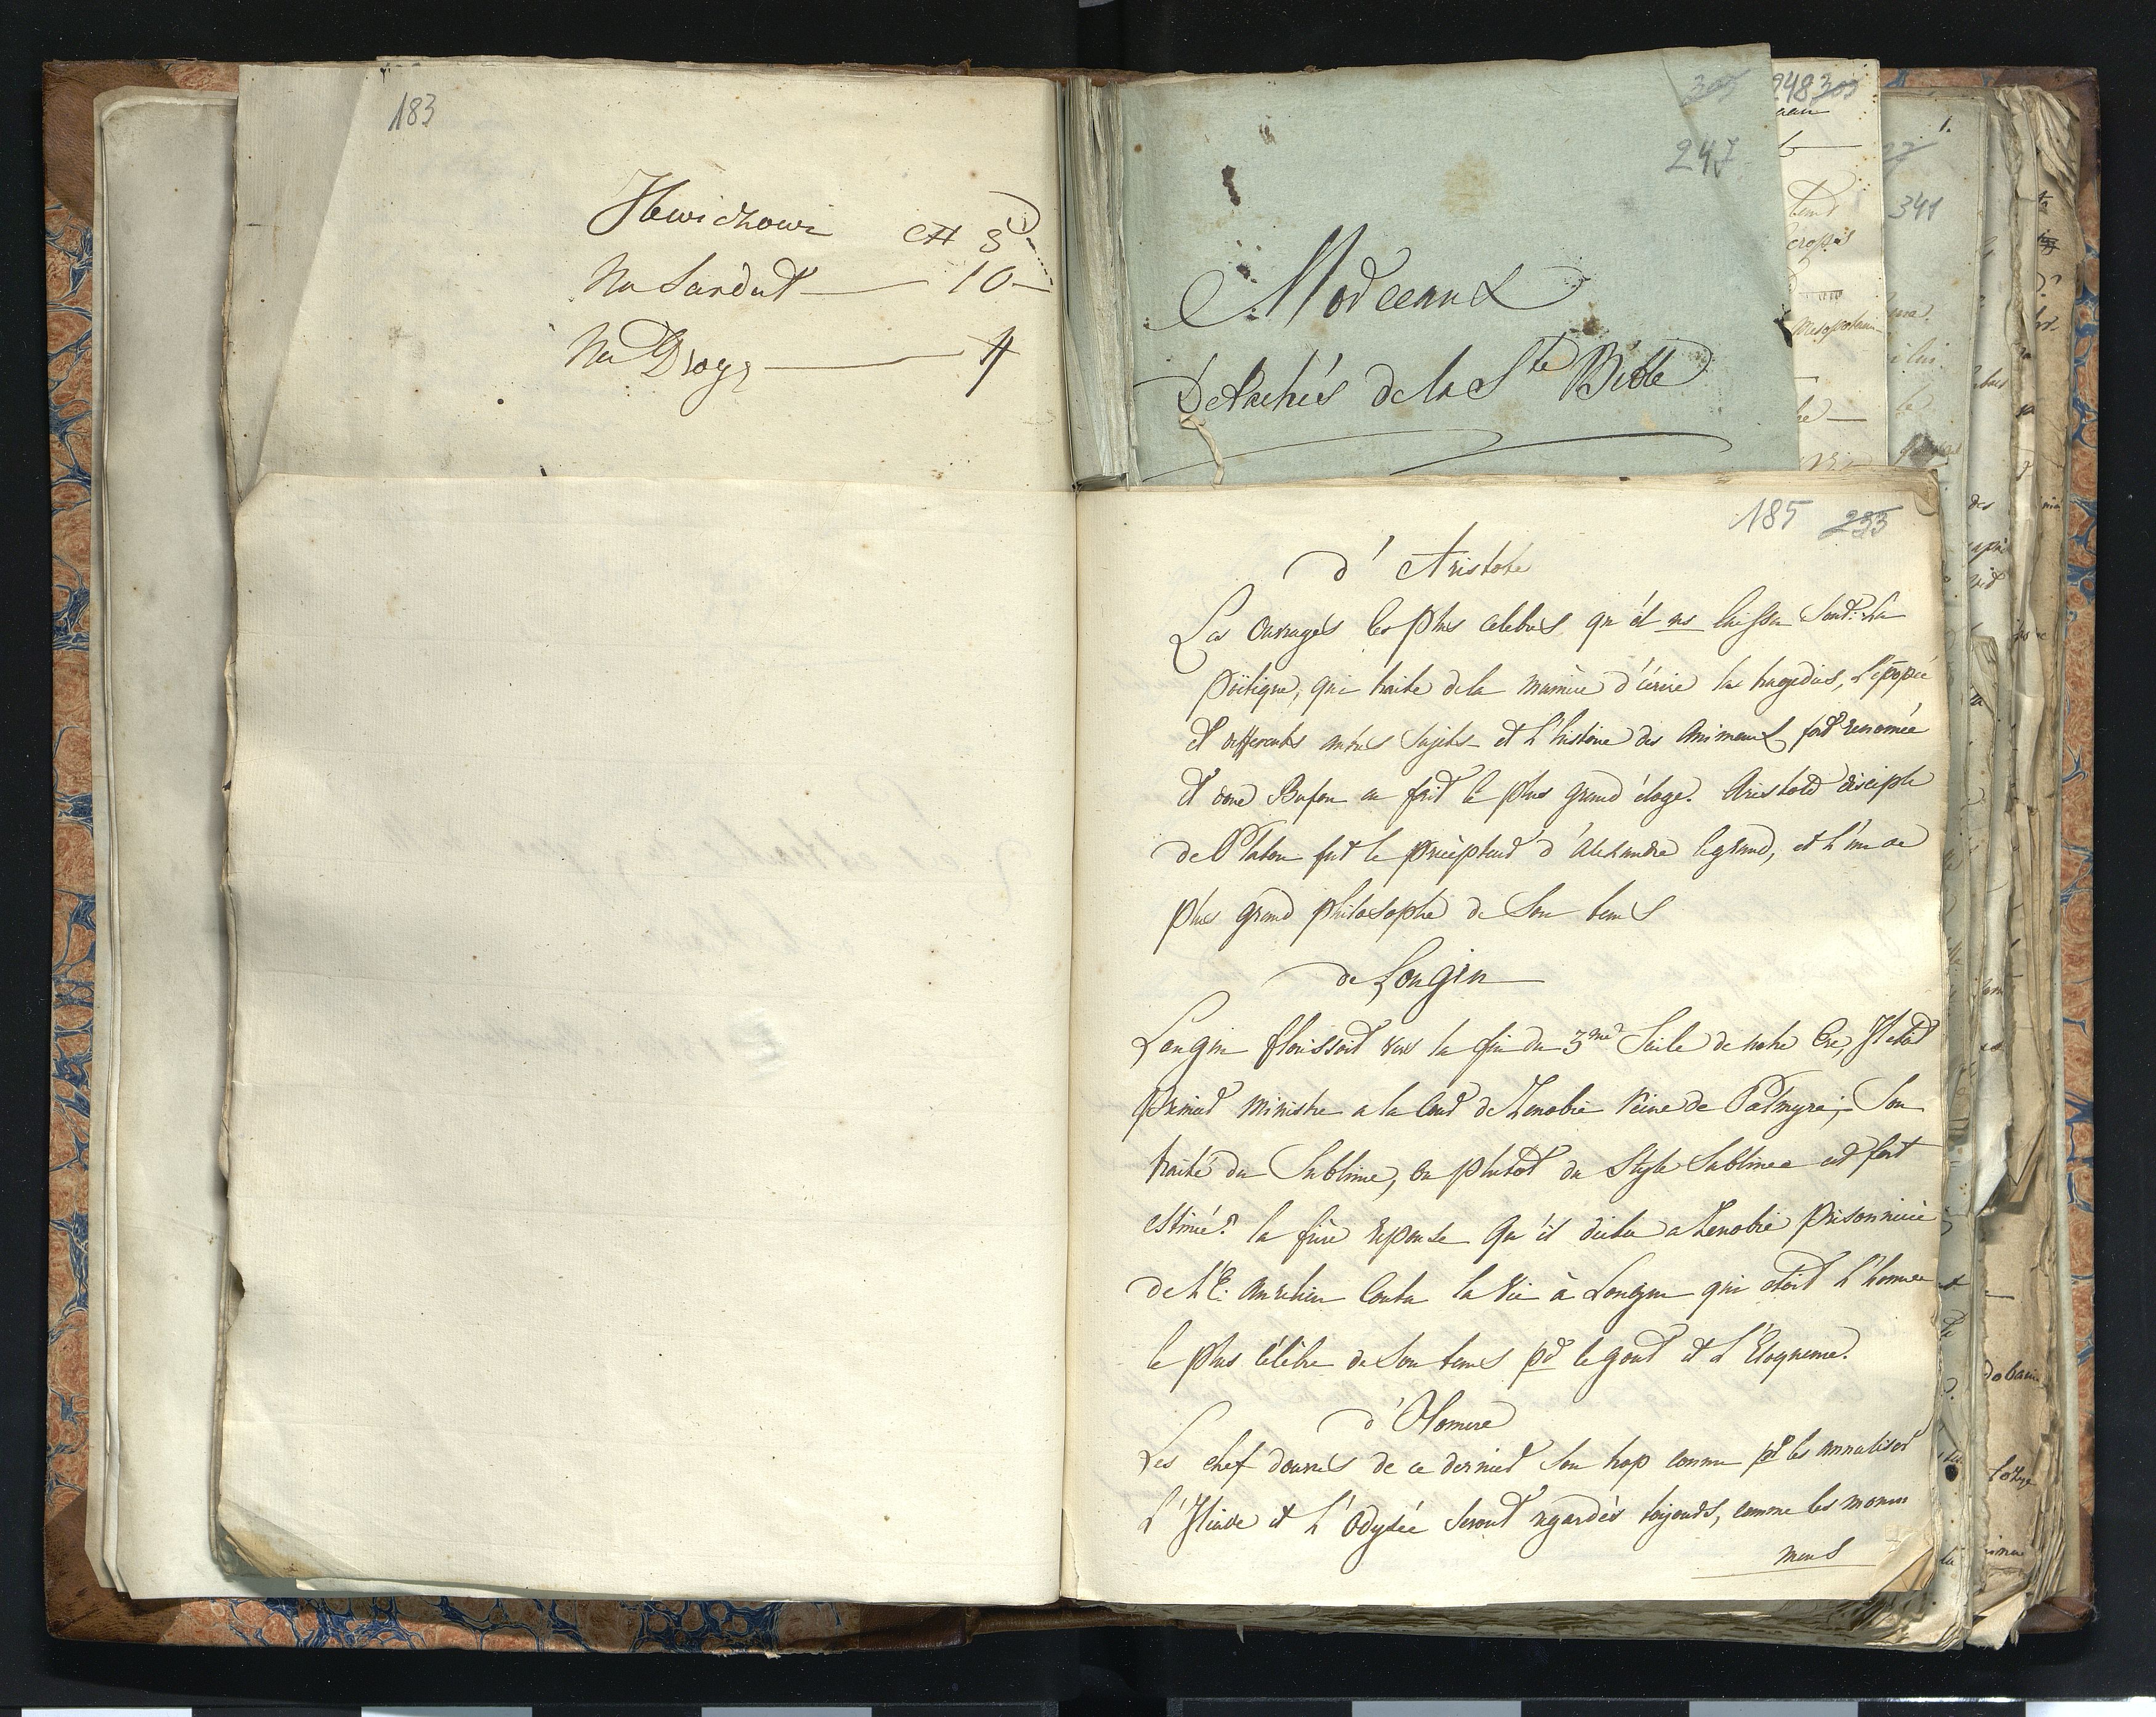 183
Na Sardut — 10 —
Na Drogę — 4
247
Morceaux
Détachés de la Ste Bible
948 303
341
1.
185 233
d'Aristote
Les Ouvrages les plus celebres qu'il ns laissa Sont: La
Poëtique, qui traite de la maniere d'écrire la tragedies, L'épopée
et differents autres Sujets et L'histoire des Animeaux fort renomée
et dont Bufon en fait le plus grand éloge. Aristote disciple
de Platon fut le précepteur d'Alexandre le grand, et L'un de
plus grand philosophe de Son tems
de Longin
Longin florissoit vers la fin du 3me Siecle de notre Ere, Il etoit
Premier ministre a la Cour de Zenobie reine de Palmyre; Son
traité du Sublime, ou plutot du Style Sublime est fort
estimé. la fiere reponse qu'il dicta a Zenobie prisonniere
de L'E. Aurelien Couta la vie à Longin qui etoit L'homme
le plus célèbre de Son tems pr le gout et L'Eloquence.
d'Homere
Les chef douvres de ce dernier Son trop connu pr les annaliser
L'Iliade et L'Odysée Seront regardés toujours, comme les monu
mens